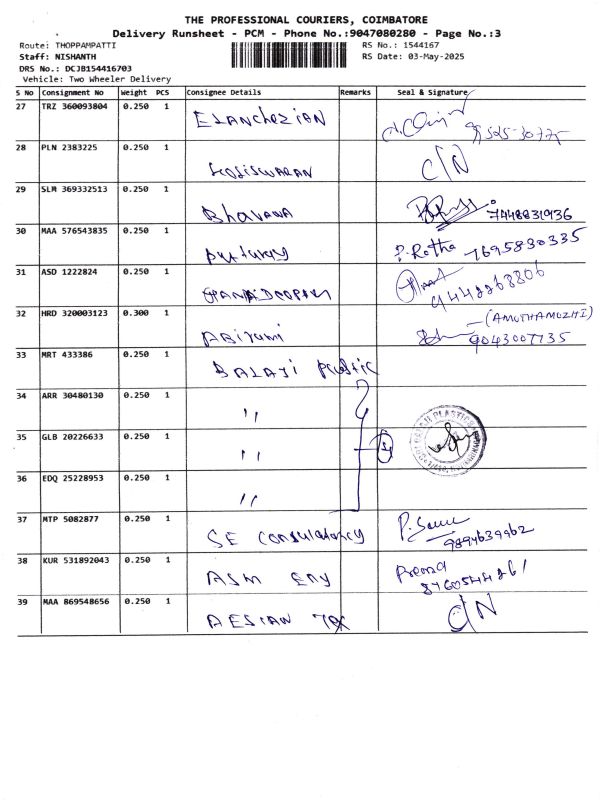 THE PROFESSIONAL COURIERS, COIMBATORE
Delivery Runsheet - PCM - Phone No.:9047080280 - Page No.:3
Route: THOPPAMPATTI
RS No.: 1544167
Staff: NISHANTH
RS Date: 03-May-2025
DRS No.: DCJB154416703
Vehicle: Two Wheeler Delivery
S No Consignment No Weight PCS Consignee Details Remarks Seal & Signature
27 TRZ 360093804 0.250 1 Elanchezian
28 PLN 2383225 0.250 1 C/N
29 SLM 369332513 0.250 1 Bhavana 7448831936
30 MAA 576543835 0.250 1 P. Ratha 7695830335
31 ASD 1222824 0.250 1
32 HRD 320003123 0.300 1 Abirami (AMUTHAMOZHI) 9043007735
33 MRT 433386 0.250 1 Balaji Plastic
34 ARR 30480130 0.250 1 "
35 GLB 20226633 0.250 1 "
36 EDQ 25228953 0.250 1 "
37 MTP 5082877 0.250 1 SE Consulatancy 9894639962
38 KUR 531892043 0.250 1 ASM Eng Prema
39 MAA 869548656 0.250 1 AESIAN TEX C/N